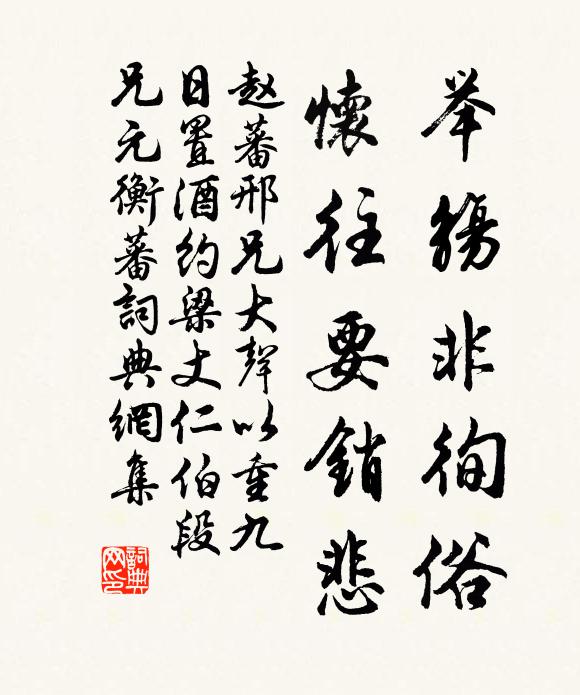 举觴非徇俗
懷往要銷悲
赵蕃邢兄大聲以重九
日置酒約梁丈仁伯段
兄元衡蕃詞典網集
詞典
网印